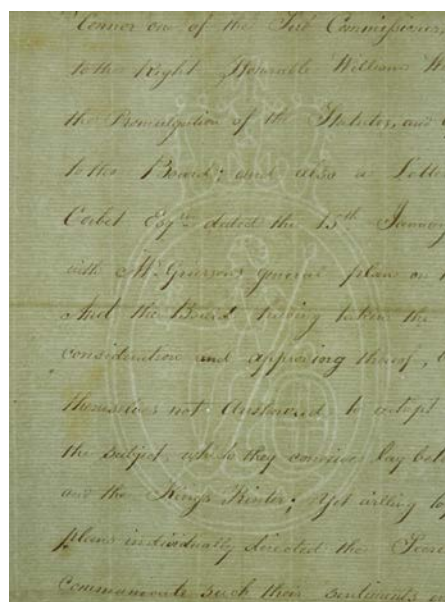 Connor one of the Sub Commissioners
to the Right Honorable William W
the Promulgation of the Statutes, and
to the Board; and also a Letter
Corbet Esqr. dated the 15th January
with Mr. Grierson's general plans on
And the Board having taken the
consideration and approving thereof,
themselves not Authorised to adopt
the subject, which they conceive lay bet
and the King's Printer; Yet willing to
plans individually directed their Secre
Communicate such their Sentiments